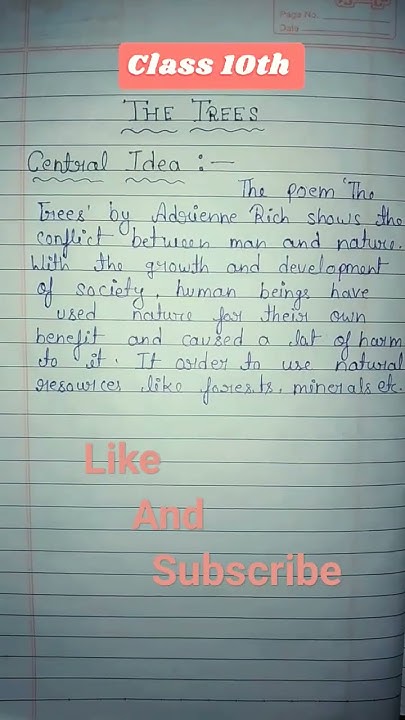 Page No.
Date
Class 10th
THE TREES
Central Idea :—
The poem 'The
Trees' by Adrienne Rich shows the
conflict between man and nature.
With the growth and development
of society, human beings have
used nature for their own
benefit and caused a lat of harm
to it. It order to use natural
resources like forests, minerals etc.
Like
And
Subscribe